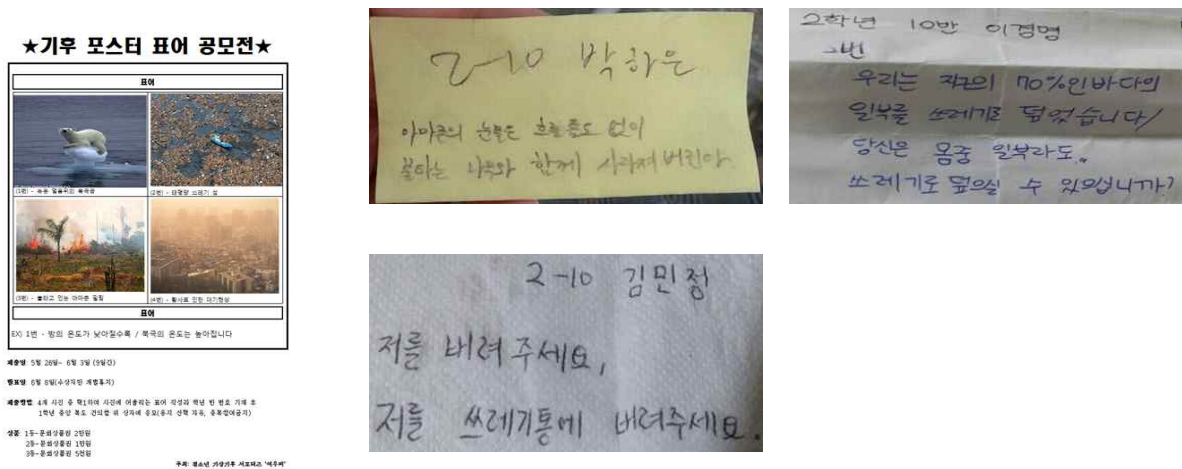 ★기후 포스터 표어 공모전★
표어
(1번) - 녹는 얼음위의 북극곰
(2번) - 태평양 쓰레기 섬
(3번) - 불타고 있는 아마존 밀림
(4번) - 황사로 인한 대기현상
표어
EX) 1번 - 방의 온도가 낮아질수록 / 북극의 온도는 높아집니다
제출일 5월 26일~ 6월 3일 (9일간)
발표일 6월 8일(수상자만 개별통지)
제출방법 4개 사진 중 택1하여 사진에 어울리는 표어 작성과 학년 반 번호 기재 후
1학년 중앙 복도 건의함 위 상자에 응모(용지 선택 자유, 중복참여금지)
상품 1등-문화상품권 2만원
2등-문화상품권 1만원
3등-문화상품권 5천원
주최: 청소년 기상기후 서포터즈
2-10 박하은
아마존의 눈물은 흐를 틈도 없이
불타는 나무와 함께 사라져버린다.
2학년 10반 이경명
2번
우리는 지구의 70%인 바다의
일부를 쓰레기로 덮었습니다/
당신은 몸중 일부라도..
쓰레기로 덮으실 수 있으십니까?
2-10 김민정
저를 버려주세요,
저를 쓰레기통에 버려주세요.